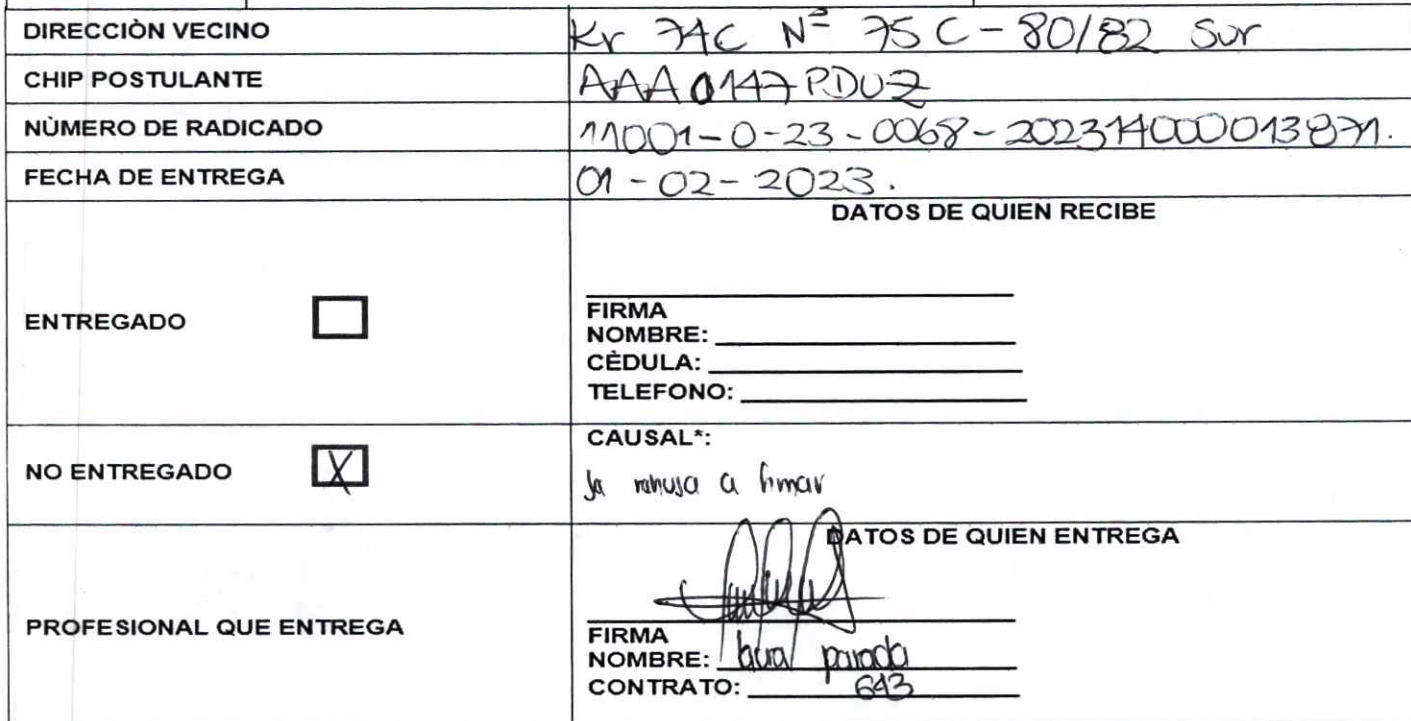 DIRECCIÒN VECINO Kr 74C Nº 75 C - 80/82 Sur
CHIP POSTULANTE AAA0147PDUZ
NÙMERO DE RADICADO 11001-0-23-0068-20231400013871.
FECHA DE ENTREGA 01-02-2023.
DATOS DE QUIEN RECIBE
ENTREGADO
FIRMA
NOMBRE:
CÈDULA:
TELEFONO:
NO ENTREGADO X
CAUSAL*:
se rehusa a firmar
DATOS DE QUIEN ENTREGA
PROFESIONAL QUE ENTREGA
FIRMA
NOMBRE: laura parada
CONTRATO: 643